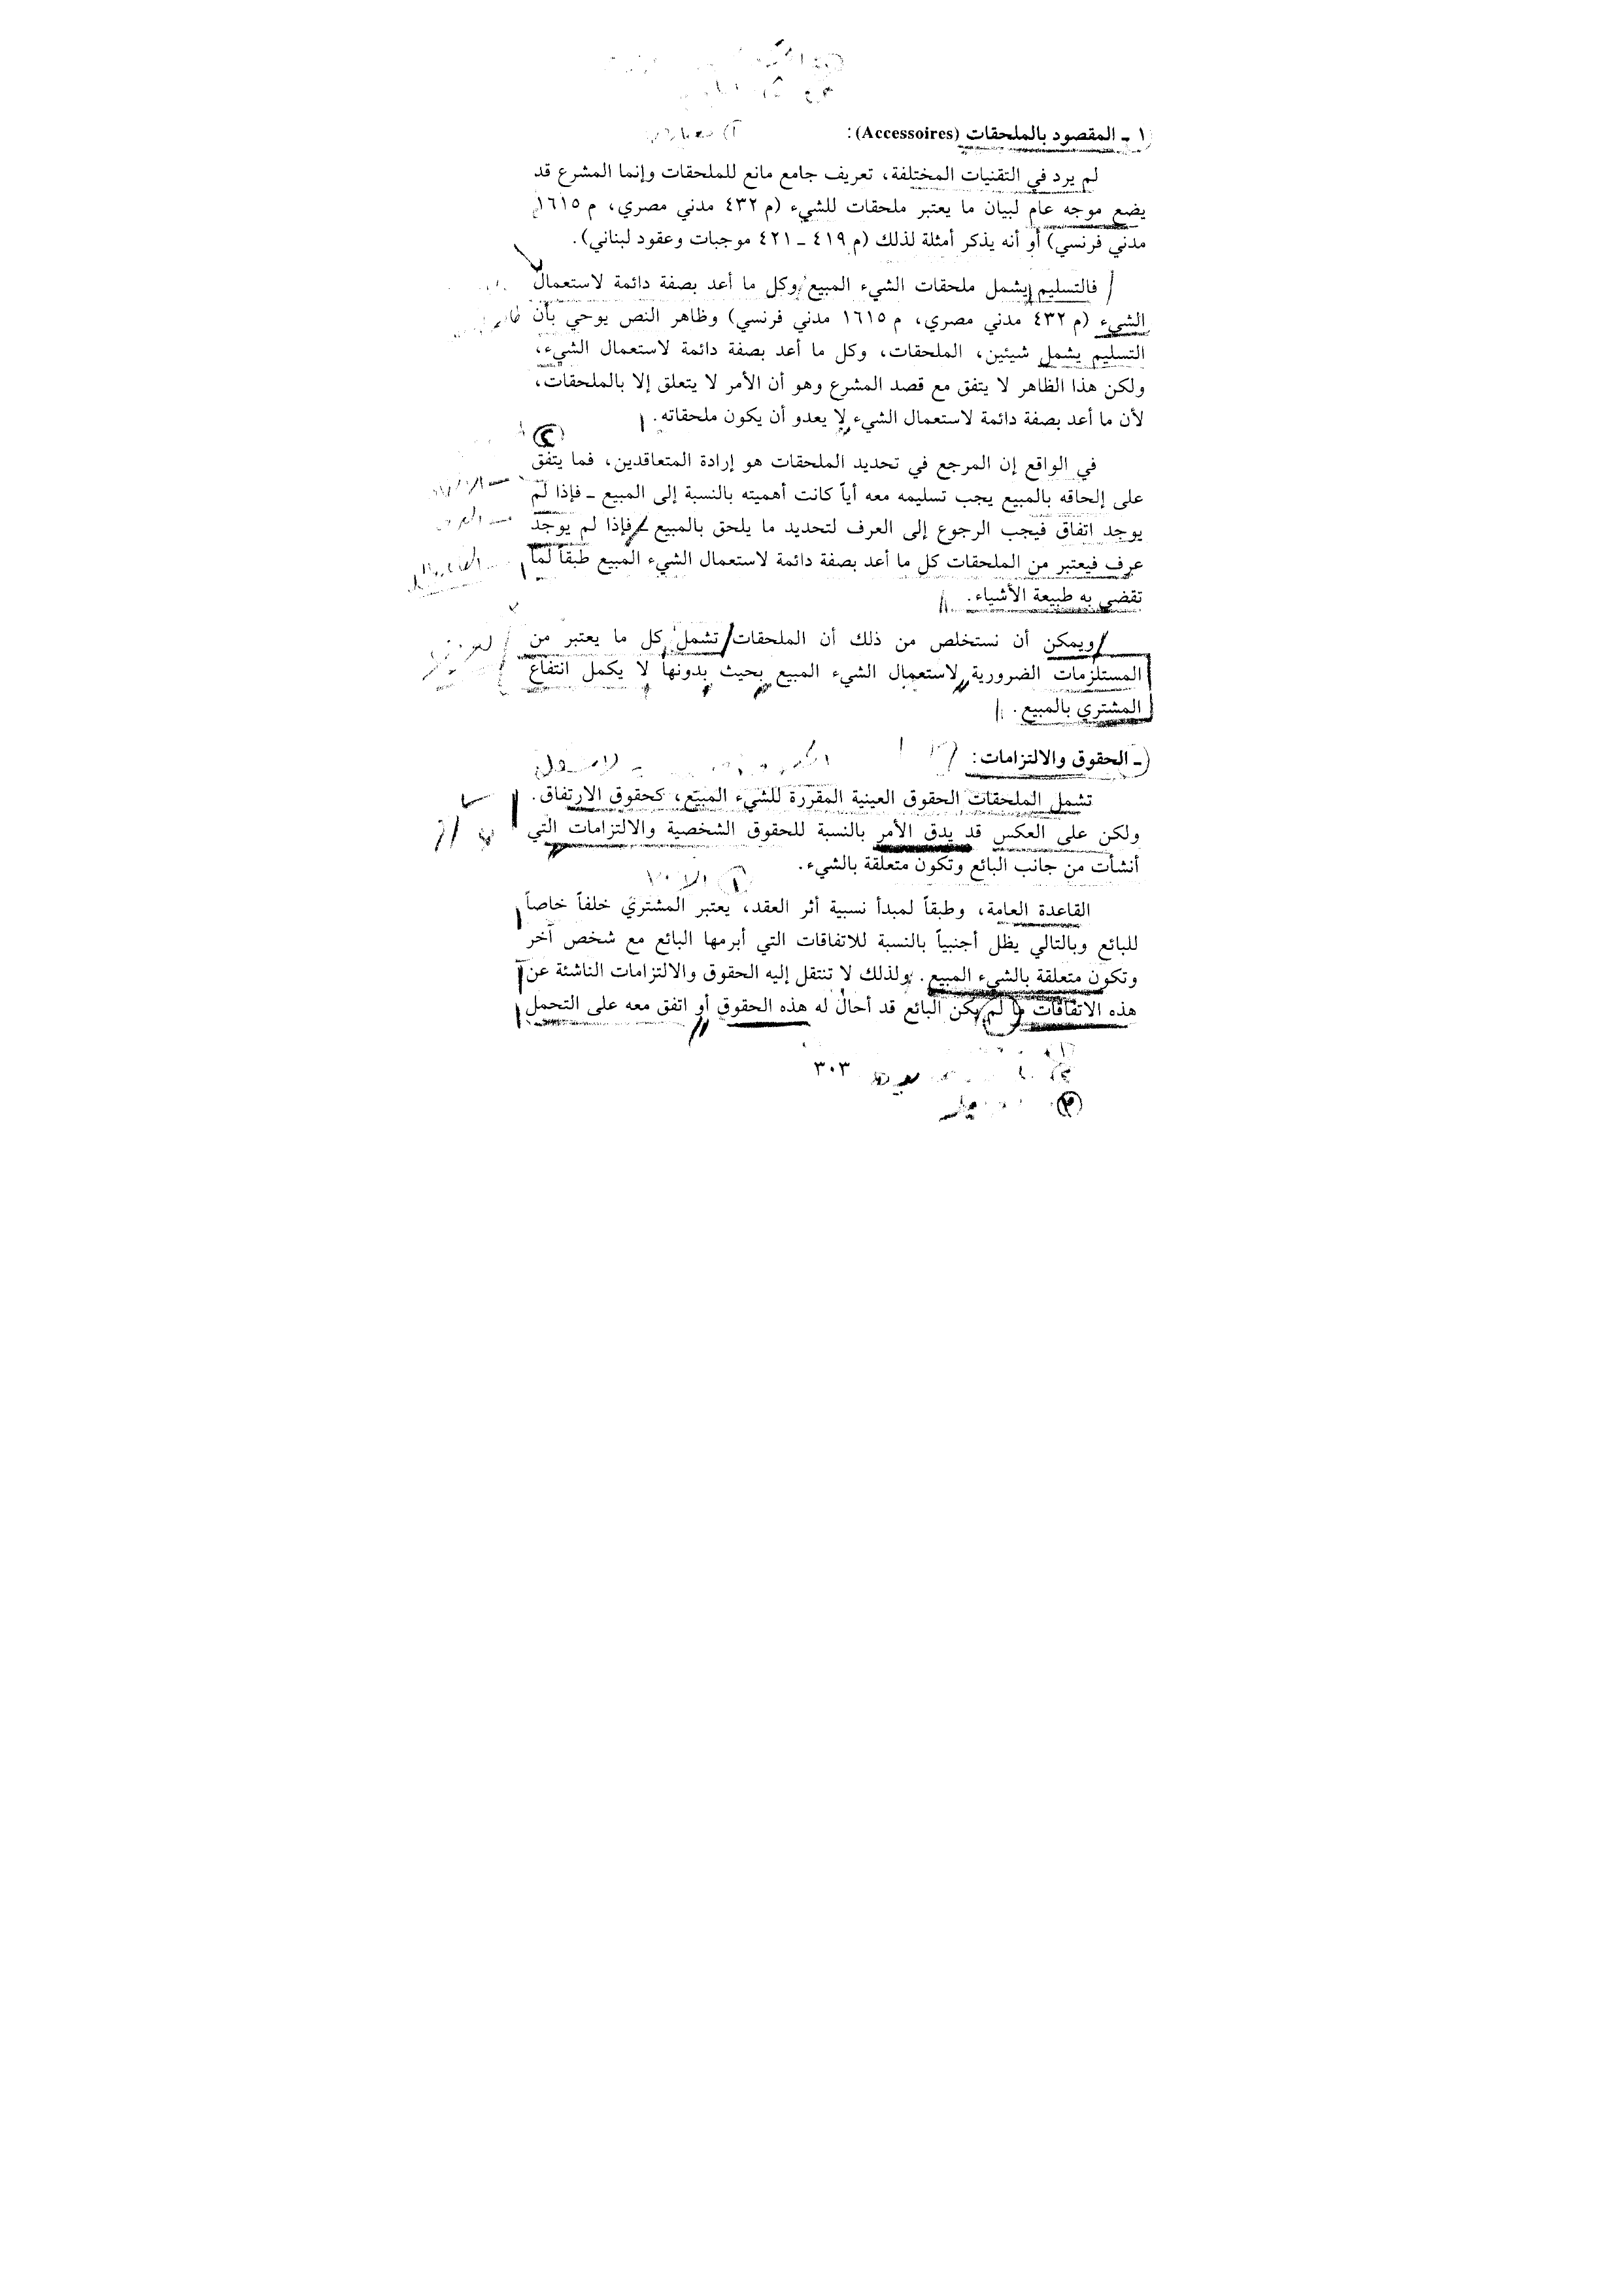 ١ ـ المقصود بالملحقات (Accessoires):
لم يرد في التقنيات المختلفة، تعريف جامع مانع للملحقات وإنما المشرع قد
يضع موجه عام لبيان ما يعتبر ملحقات للشيء (م ٤٣٢ مدني مصري، م ١٦١٥
مدني فرنسي) أو أنه يذكر أمثلة لذلك (م ٤١٩ ـ ٤٢١ موجبات وعقود لبناني).
فالتسليم يشمل ملحقات الشيء المبيع وكل ما أعد بصفة دائمة لاستعمال
الشيء (م ٤٣٢ مدني مصري، م ١٦١٥ مدني فرنسي) وظاهر النص يوحي بأن
التسليم يشمل شيئين، الملحقات، وكل ما أعد بصفة دائمة لاستعمال الشيء،
ولكن هذا الظاهر لا يتفق مع قصد المشرع وهو أن الأمر لا يتعلق إلا بالملحقات،
لأن ما أعد بصفة دائمة لاستعمال الشيء لا يعدو أن يكون ملحقاته.
في الواقع إن المرجع في تحديد الملحقات هو إرادة المتعاقدين، فما يتفق
على إلحاقه بالمبيع يجب تسليمه معه أياً كانت أهميته بالنسبة إلى المبيع ـ فإذا لم
يوجد اتفاق فيجب الرجوع إلى العرف لتحديد ما يلحق بالمبيع ـ فإذا لم يوجد
عرف فيعتبر من الملحقات كل ما أعد بصفة دائمة لاستعمال الشيء المبيع طبقاً لما
تقضي به طبيعة الأشياء.
ويمكن أن نستخلص من ذلك أن الملحقات تشمل كل ما يعتبر من
المستلزمات الضرورية لاستعمال الشيء المبيع بحيث بدونها لا يكمل انتفاع
المشتري بالمبيع.
ـ الحقوق والالتزامات:
تشمل الملحقات الحقوق العينية المقررة للشيء المبيع، كحقوق الارتفاق.
ولكن على العكس قد يدق الأمر بالنسبة للحقوق الشخصية والالتزامات التي
أنشأت من جانب البائع وتكون متعلقة بالشيء.
القاعدة العامة، وطبقاً لمبدأ نسبية أثر العقد، يعتبر المشتري خلفاً خاصاً
للبائع وبالتالي يظل أجنبياً بالنسبة للاتفاقات التي أبرمها البائع مع شخص آخر
وتكون متعلقة بالشيء المبيع. ولذلك لا تنتقل إليه الحقوق والالتزامات الناشئة عن
هذه الاتفاقات ما لم يكن البائع قد أحال له هذه الحقوق أو اتفق معه على التحمل
٣٠٣